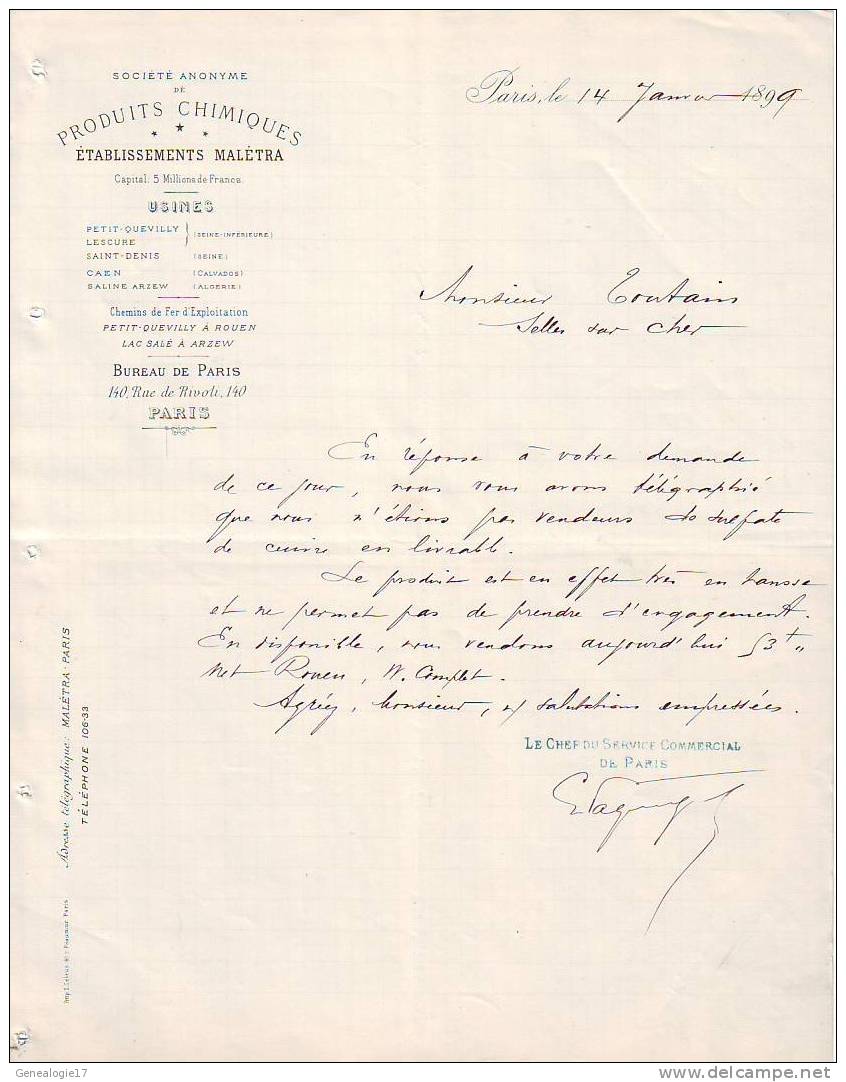 SOCIÉTÉ ANONYME
DE
PRODUITS CHIMIQUES
ÉTABLISSEMENTS MALÉTRA
Capital: 5 Millions de Francs.
USINES
PETIT-QUEVILLY
LESCURE
(SEINE-INFÉRIEURE)
SAINT-DENIS (SEINE)
CAEN (CALVADOS)
SALINE ARZEW (ALGÉRIE)
Chemins de Fer d'Exploitation
PETIT-QUEVILLY À ROUEN
LAC SALÉ À ARZEW
BUREAU DE PARIS
140, Rue de Rivoli, 140
PARIS
Paris, le 14 Janvier 1899
Monsieur Toutain
Selles sur Cher
En réponse à votre demande
de ce jour, nous vous avons télégraphié
que nous n'étions pas vendeurs de sulfate
de cuivre en livrable.
Le produit est en effet très en hausse
et ne permet pas de prendre d'engagement.
En disponible, nous vendons aujourd'hui 53 f "
net Rouen, W. Complet.
Agréez, Monsieur, n/ salutations empressées.
LE CHEF DU SERVICE COMMERCIAL
DE PARIS
Adresse télégraphique: MALÉTRA-PARIS
TÉLÉPHONE 106-33
Paris
Genealogie17
delcampe.net